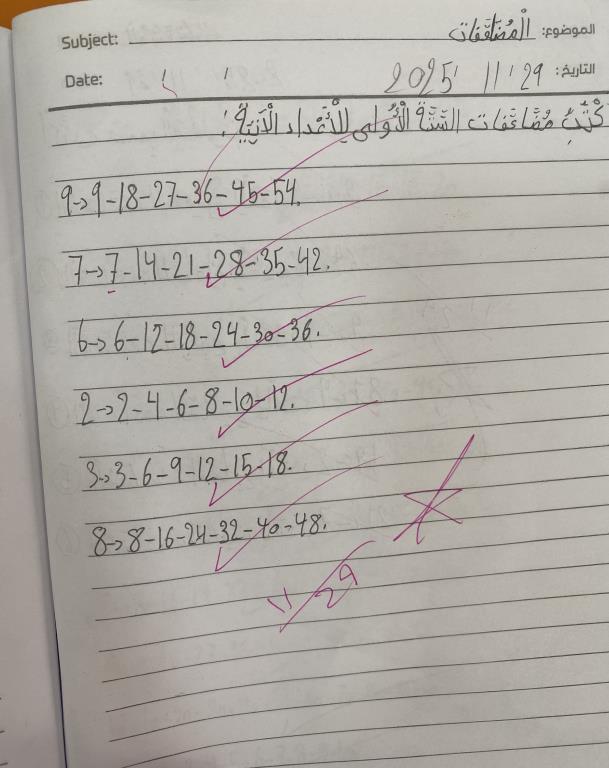 Subject: الْمُضَاعَفَات الموضوع:
Date: / / 2025 / 11 / 29 التاريخ:
كْتُبُ مُضَاعَفَات السِّتَّة الْأُولى لِلْأَعْدَاد الْآتِيَة:
9→9-18-27-36-45-54.
7→7-14-21-28-35-42.
6→6-12-18-24-30-36.
2→2-4-6-8-10-12.
3→3-6-9-12-15-18.
8→8-16-24-32-40-48.
11/29